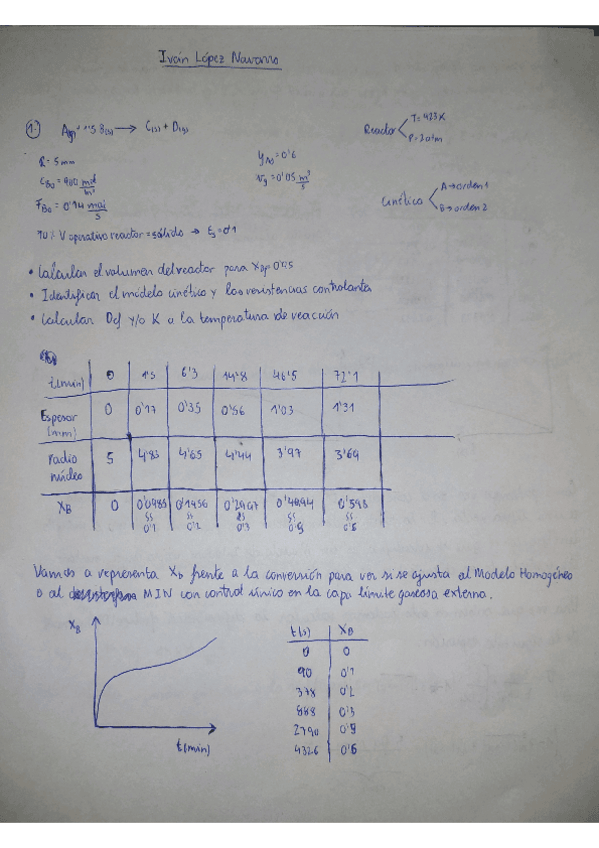 Iván López Navarro
1. A(g) + 1'5 B(s) → C(s) + D(g)
Reactor
T = 423 K
P = 3 atm
R = 5 mm
yA0 = 0'6
CB0 = 900 mol/m³
vg = 0'05 m³/s
Cinético
A → orden 1
B → orden 2
FB0 = 0'14 mol/s
90% V operativo reactor = sólido → ξ = 0'1
• Calcular el volumen del reactor para
• Identificar el modelo cinético y las resistencias controlantes
• Calcular Def y/o K a la temperatura de reacción
t(min) 0 1'5 6'3 14'8 46'5 72'1
Espesor (mm) 0 0'17 0'35 0'56 1'03 1'31
radio núcleo 5 4'83 4'65 4'44 3'97 3'69
XB 0 0'0985 0'1956 0'2997 0'4994 0'598
0'1 0'2 0'3 0'5 0'6
Vamos a representa Xb frente a la conversión para ver si se ajusta al Modelo Homogéneo
o al MIN con control único en la capa límite gaseosa externa.
XB
t(min)
t(s) XB
0 0
90 0'1
378 0'2
888 0'3
2790 0'5
4326 0'6